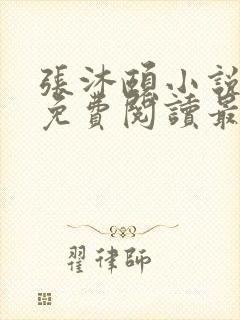 張沐頤小說
免費閱讀最
翟律師